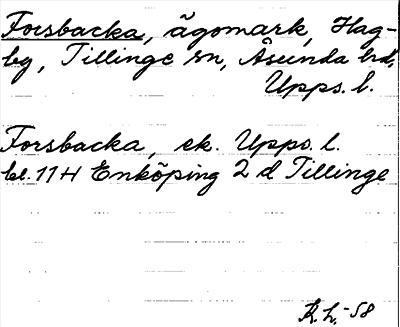 Forsbacka, ägomark, Hag-
by, Tillinge sn, Åsunda hd,
Upps. l.
Forsbacka, ek. Upps. l.
bl. 11 H Enköping 2 d Tillinge
R. L. -58